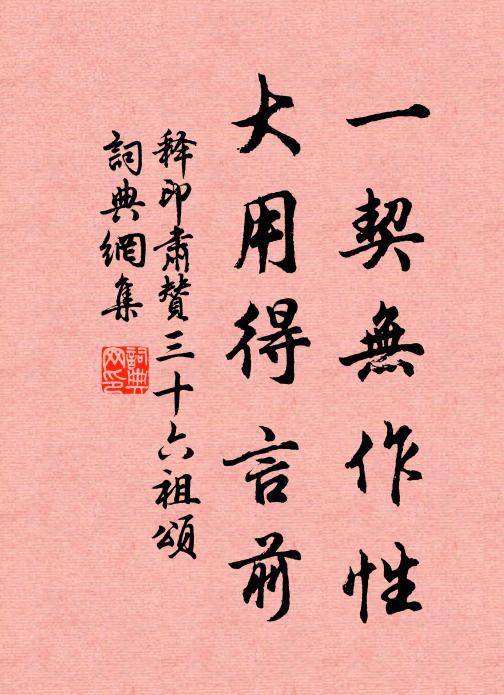 一契無作性
大用得言前
释印肅贊三十六祖頌
詞典網集
詞典網印